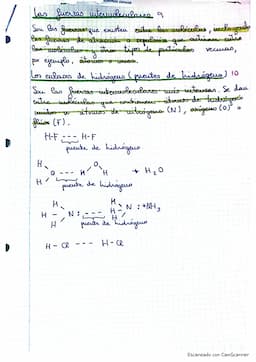 Las fuerzas intermoleculares 9
Son las fuerzas que existen entre las moléculas, incluyendo
las fuerzas de atracción y repulsión que actúan entre
las moléculas y otro tipo de partículas vecinas,
por ejemplo, átomos o iones.
Los enlaces de hidrógeno (puentes de hidrógeno) 10
Son las fuerzas intermoleculares más intensas. Se dan
entre moléculas que contienen átomos de hidrógeno
unidos a átomos de nitrógeno (N), oxígeno (O) o
flúor (F).
H-F --- H-F
puente de hidrógeno
H H
O --- H O + H₂O
H
puente de hidrógeno
H H
H - N: --- H - N: + NH₃
H H
puente de hidrógeno
H - Cl --- H-Cl
Escaneado con CamScanner